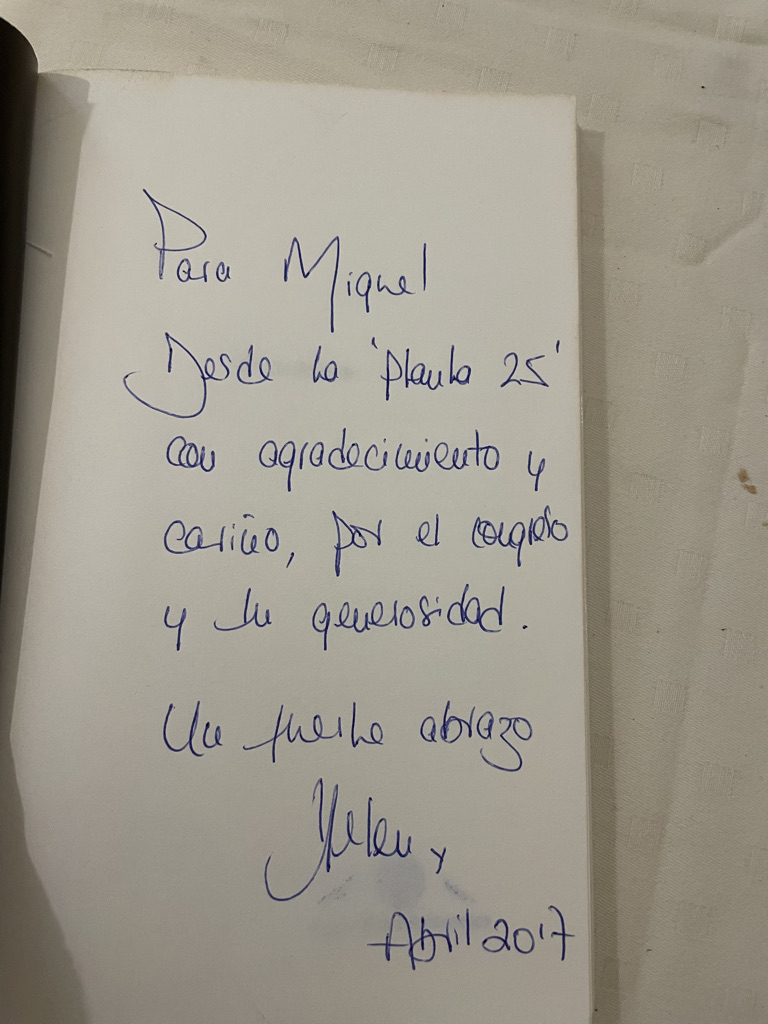 Para Miguel
Desde la 'planta 25'
con agradecimiento y
cariño, por el congreso
y tu generosidad.
Un fuerte abrazo
Helen x
Abril 2017